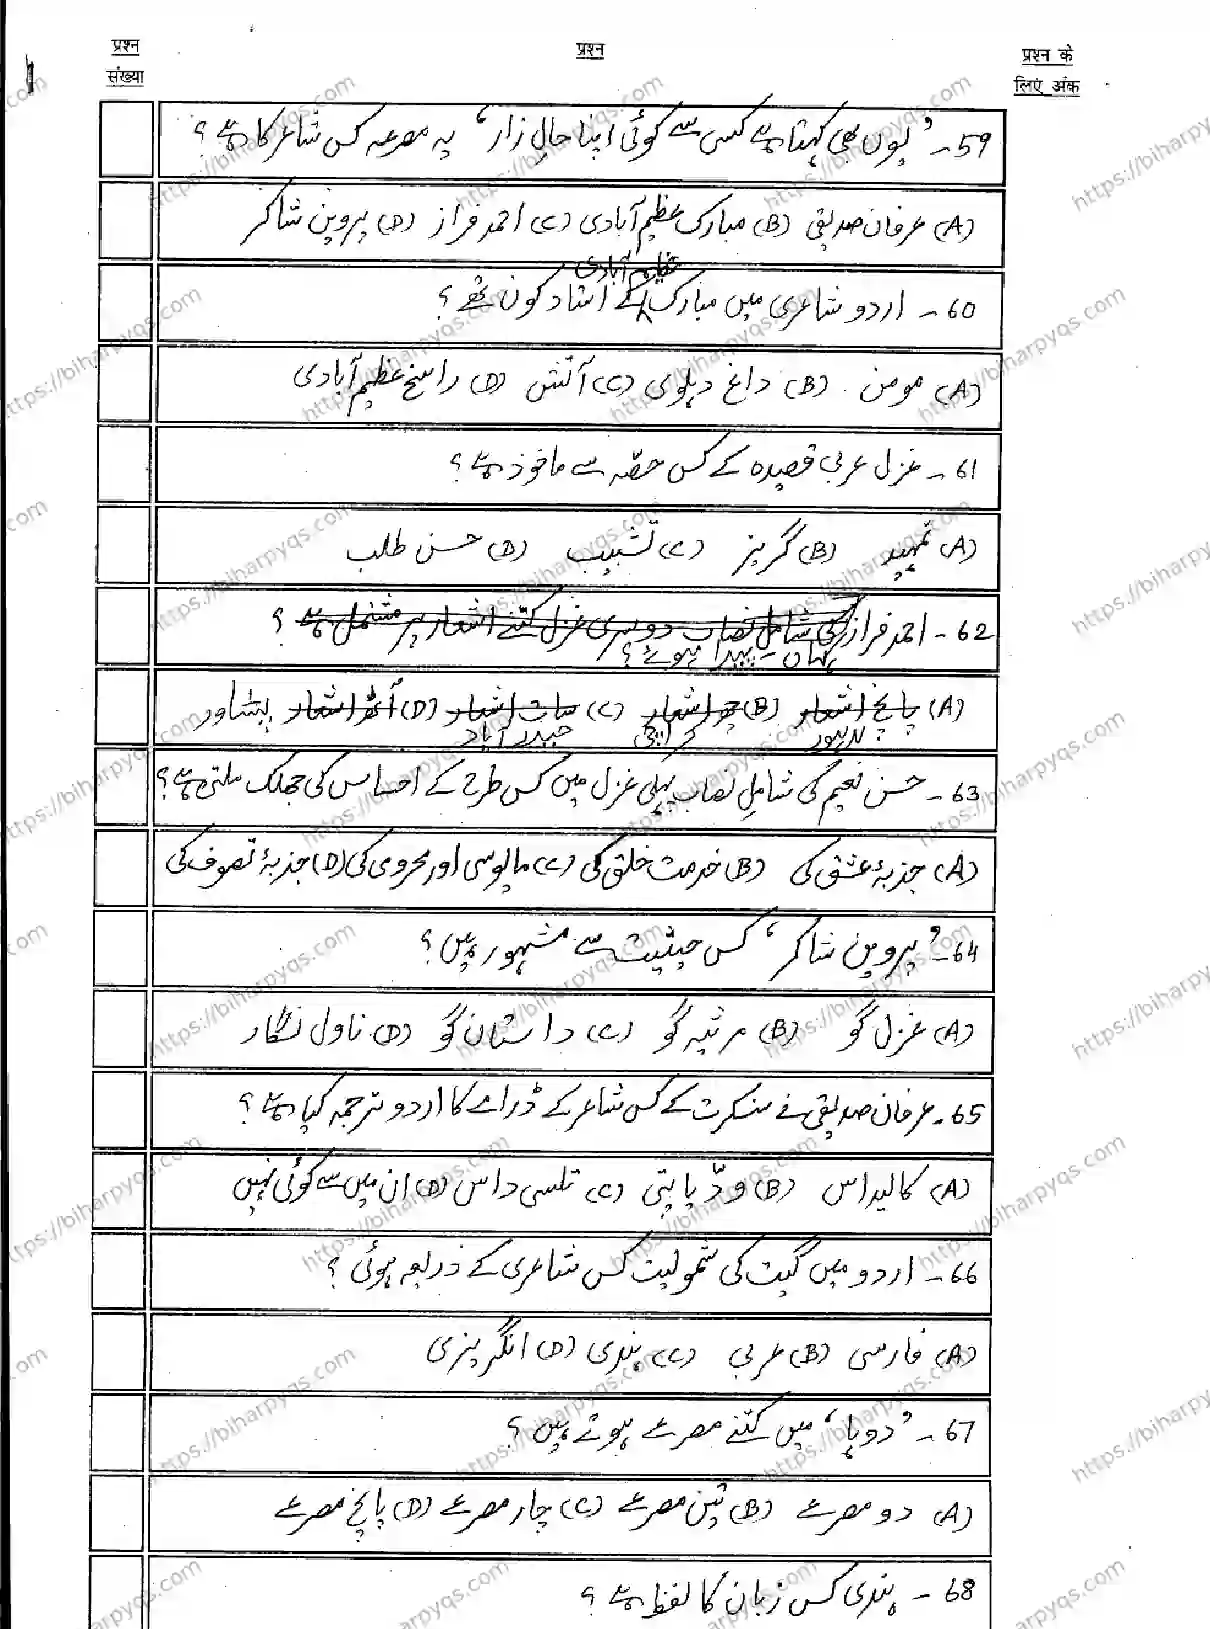 प्रश्न
संख्या
प्रश्न
प्रश्न के
लिए अंक
59۔ ’یوں بھی کہتا ہے کسی سے کوئی اپنا حالِ زار‘ یہ مصرعہ کس شاعر کا ہے؟
(A) عرفان صدیقی (B) مبارک عظیم آبادی (C) احمد فراز (D) پروین شاکر
60۔ اردو شاعری میں مبارک عظیم آبادی کے استاد کون تھے؟
(A) مومن (B) داغ دہلوی (C) آتش (D) راسخ عظیم آبادی
61۔ غزل عربی قصیدہ کے کس حصّہ سے ماخوذ ہے؟
(A) تمہید (B) گریز (C) تشبیب (D) حسن طلب
62۔ احمد فراز کی شاملِ نصاب دوسری غزل کتنے اشعار پر مشتمل ہے؟
کہاں پیدا ہوئے؟
(A) پانچ اشعار (B) چھ اشعار (C) سات اشعار (D) آٹھ اشعار پشاور
لاہور کراچی حیدرآباد
63۔ حسن نعیم کی شاملِ نصاب پہلی غزل میں کس طرح کے احساس کی جھلک ملتی ہے؟
(A) جذبۂ عشق کی (B) خدمت خلق کی (C) مایوسی اور محرومی کی (D) جذبۂ تصوف کی
64۔ ’پروین شاکر‘ کس حیثیت سے مشہور ہیں؟
(A) غزل گو (B) مرثیہ گو (C) داستان گو (D) ناول نگار
65۔ عرفان صدیقی نے سنسکرت کے کس شاعر کے ڈرامے کا اردو ترجمہ کیا ہے؟
(A) کالیداس (B) ودّیاپتی (C) تلسی داس (D) ان میں سے کوئی نہیں
66۔ اردو میں گیت کی شمولیت کس شاعری کے ذریعہ ہوئی؟
(A) فارسی (B) عربی (C) ہندی (D) انگریزی
67۔ ’دوہا‘ میں کتنے مصرعے ہوتے ہیں؟
(A) دو مصرعے (B) تین مصرعے (C) چار مصرعے (D) پانچ مصرعے
68۔ ہندی کس زبان کا لفظ ہے؟
https://biharpyqs.com